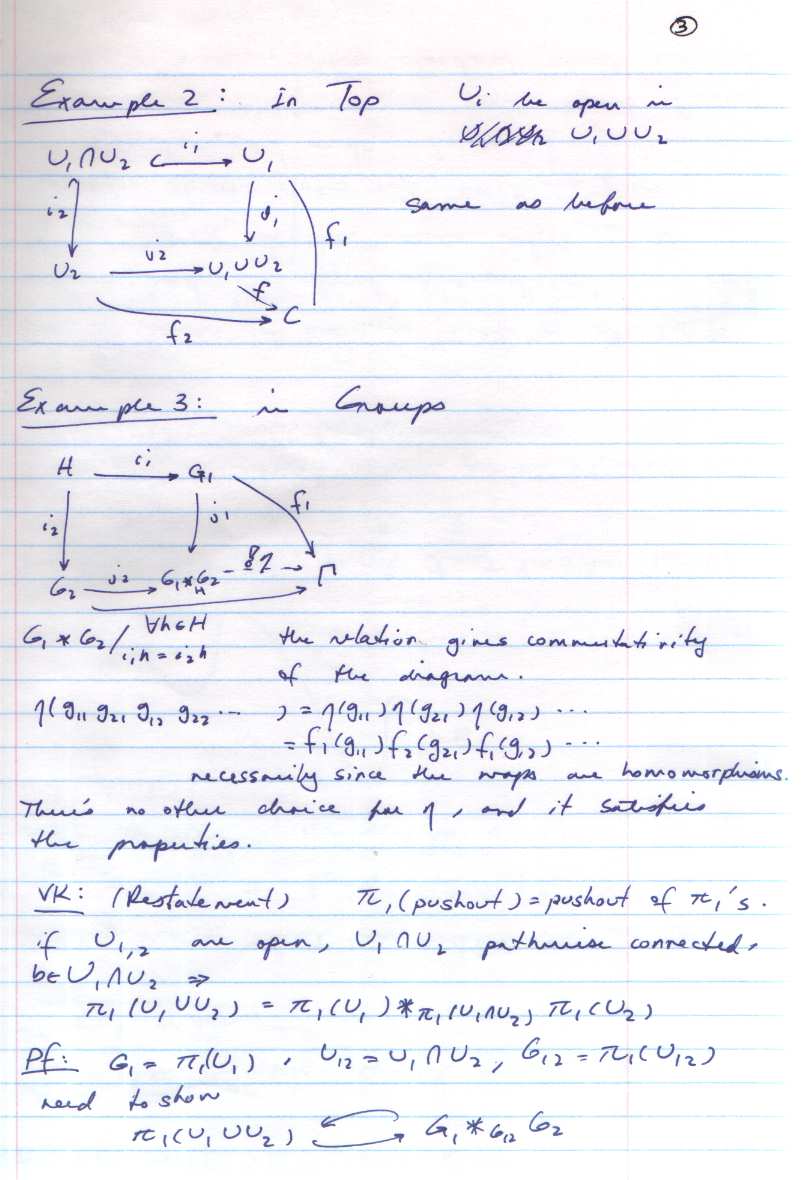 ③
Example 2: In Top U_i be open in
U_1 ∪ U_2
U_1 ∩ U_2 ↪ i_1 U_1
i_2 j_1 same as before
f_1
U_2 j_2 → U_1 ∪ U_2
f
f_2 C
Example 3: in Groups
H i_1 → G_1
i_2 j_1 f_1
G_2 j_2 → G_1 *_H G_2 - ∃! η → Γ
G_1 * G_2 / ∀h∈H i_1h = i_2h the relation gives commutativity
of the diagram.
η(g_11 g_21 g_12 g_22 ... ) = η(g_11) η(g_21) η(g_12) ...
= f_1(g_11) f_2(g_21) f_1(g_12) ...
necessarily since the maps are homomorphisms.
There's no other choice for η, and it satisfies
the properties.
VK: (Restatement) π_1(pushout) = pushout of π_1's.
if U_1,2 are open, U_1 ∩ U_2 pathwise connected,
b∈U_1∩U_2 ⇒
π_1(U_1 ∪ U_2) = π_1(U_1) *_π_1(U_1∩U_2) π_1(U_2)
Pf: G_1 = π_1(U_1), U_12 = U_1 ∩ U_2, G_12 = π_1(U_12)
need to show
π_1(U_1 ∪ U_2) ⇄ G_1 *_G_12 G_2